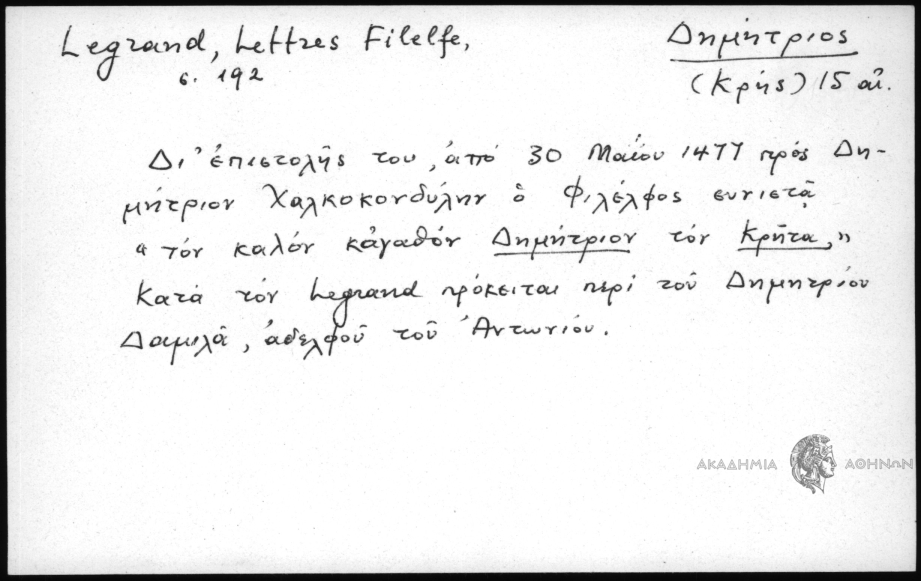 Legrand, Lettres Filelfe,
σ. 192
Δημήτριος
(Κρής) 15 αἰ.
Δι' ἐπιστολῆς του, ἀπό 30 Μαΐου 1477 πρός Δη-
μήτριον Χαλκοκονδύλην ὁ Φιλέλφος συνιστᾷ
« τόν καλόν κἀγαθόν Δημήτριον τόν Κρῆτα,»
Κατά τόν Legrand πρόκειται περί τοῦ Δημητρίου
Δαμιλᾶ, ἀδελφοῦ τοῦ Ἀντωνίου.
ΑΚΑΔΗΜΙΑ ΑΘΗΝΩΝ